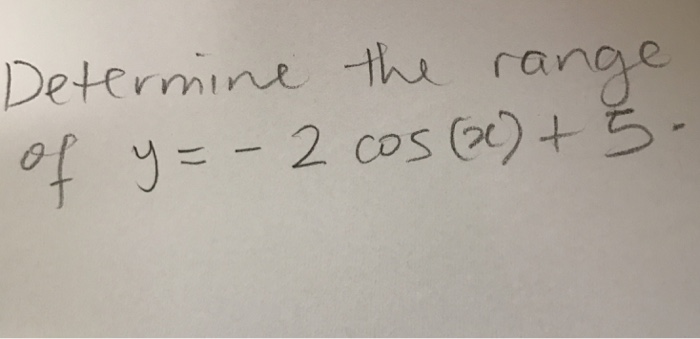 Determine the range
of y = - 2 cos(x) + 5.